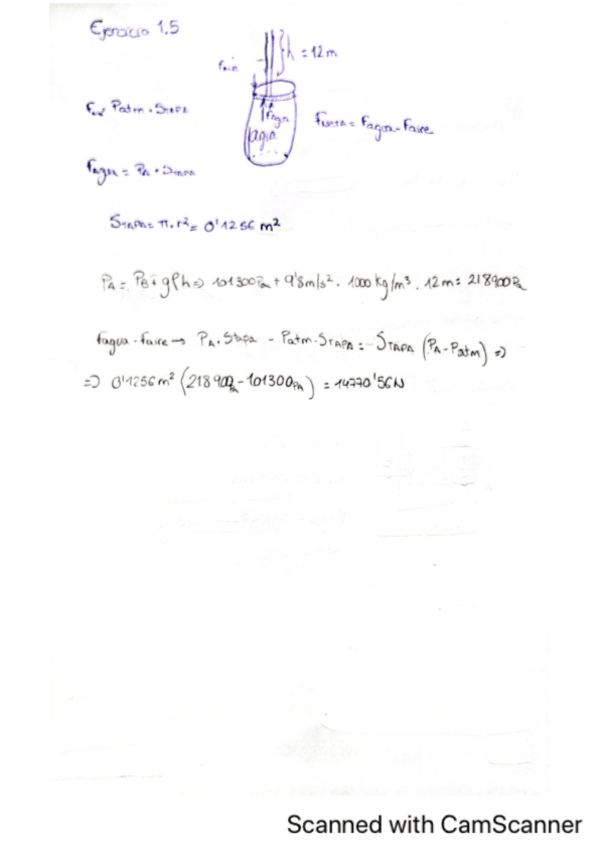 Ejercicio 1.5
h = 12m
Faire
Faire = Patm · STAPA
Fagua
agua
Fneta = Fagua - Faire
Fagua = PA · STAPA
STAPA = π · r² = 0'1256 m²
PA = PB + gρh => 101300 Pa + 9'8 m/s² · 1000 kg/m³ · 12m = 218900 Pa
Fagua - Faire → PA · Stapa - Patm · STAPA = STAPA (PA - Patm) =>
=> 0'1256 m² (218900 Pa - 101300 Pa) = 14770'56 N
Scanned with CamScanner